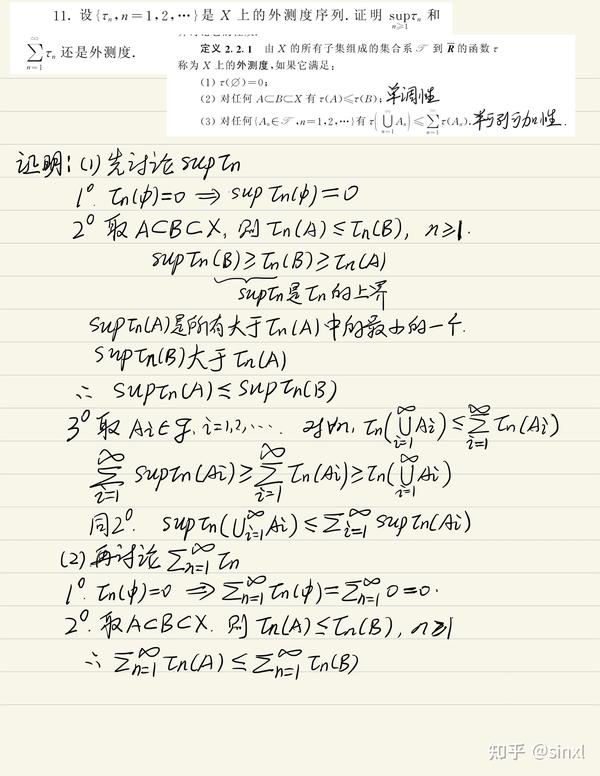 11. 设{τₙ,n=1,2,⋯}是 X 上的外测度序列. 证明 sup_{n≥1} τₙ 和
∑_{n=1}^{∞} τₙ 还是外测度.
定义 2.2.1 由 X 的所有子集组成的集合系 𝒯 到 R̄ 的函数 τ
称为 X 上的外测度,如果它满足:
(1) τ(∅)=0;
(2) 对任何 A⊂B⊂X 有 τ(A)≤τ(B); 单调性
(3) 对任何{Aₙ∈𝒯,n=1,2,⋯}有 τ(⋃_{n=1}^{∞} Aₙ)≤∑_{n=1}^{∞} τ(Aₙ). 半可列可加性.
证明: (1) 先讨论 sup τₙ
1° τₙ(φ)=0 ⇒ sup τₙ(φ)=0
2° 取 A⊂B⊂X, 则 τₙ(A)≤τₙ(B), n≥1.
sup τₙ(B)≥τₙ(B)≥τₙ(A)
sup τₙ是τₙ的上界
sup τₙ(A)是所有大于τₙ(A)中的最小的一个.
sup τₙ(B)大于τₙ(A)
∴ sup τₙ(A)≤sup τₙ(B)
3° 取 Aᵢ∈𝒯, i=1,2,⋯. 对∀n, τₙ(⋃_{i=1}^{∞} Aᵢ)≤∑_{i=1}^{∞} τₙ(Aᵢ)
∑_{i=1}^{∞} sup τₙ(Aᵢ)≥∑_{i=1}^{∞} τₙ(Aᵢ)≥τₙ(⋃_{i=1}^{∞} Aᵢ)
同2°. sup τₙ(⋃_{i=1}^{∞} Aᵢ)≤∑_{i=1}^{∞} sup τₙ(Aᵢ)
(2) 再讨论 ∑_{n=1}^{∞} τₙ
1°. τₙ(φ)=0 ⇒ ∑_{n=1}^{∞} τₙ(φ)=∑_{n=1}^{∞} 0=0.
2°. 取A⊂B⊂X. 则 τₙ(A)≤τₙ(B), n≥1
∴ ∑_{n=1}^{∞} τₙ(A)≤∑_{n=1}^{∞} τₙ(B)
知乎 @sinxl